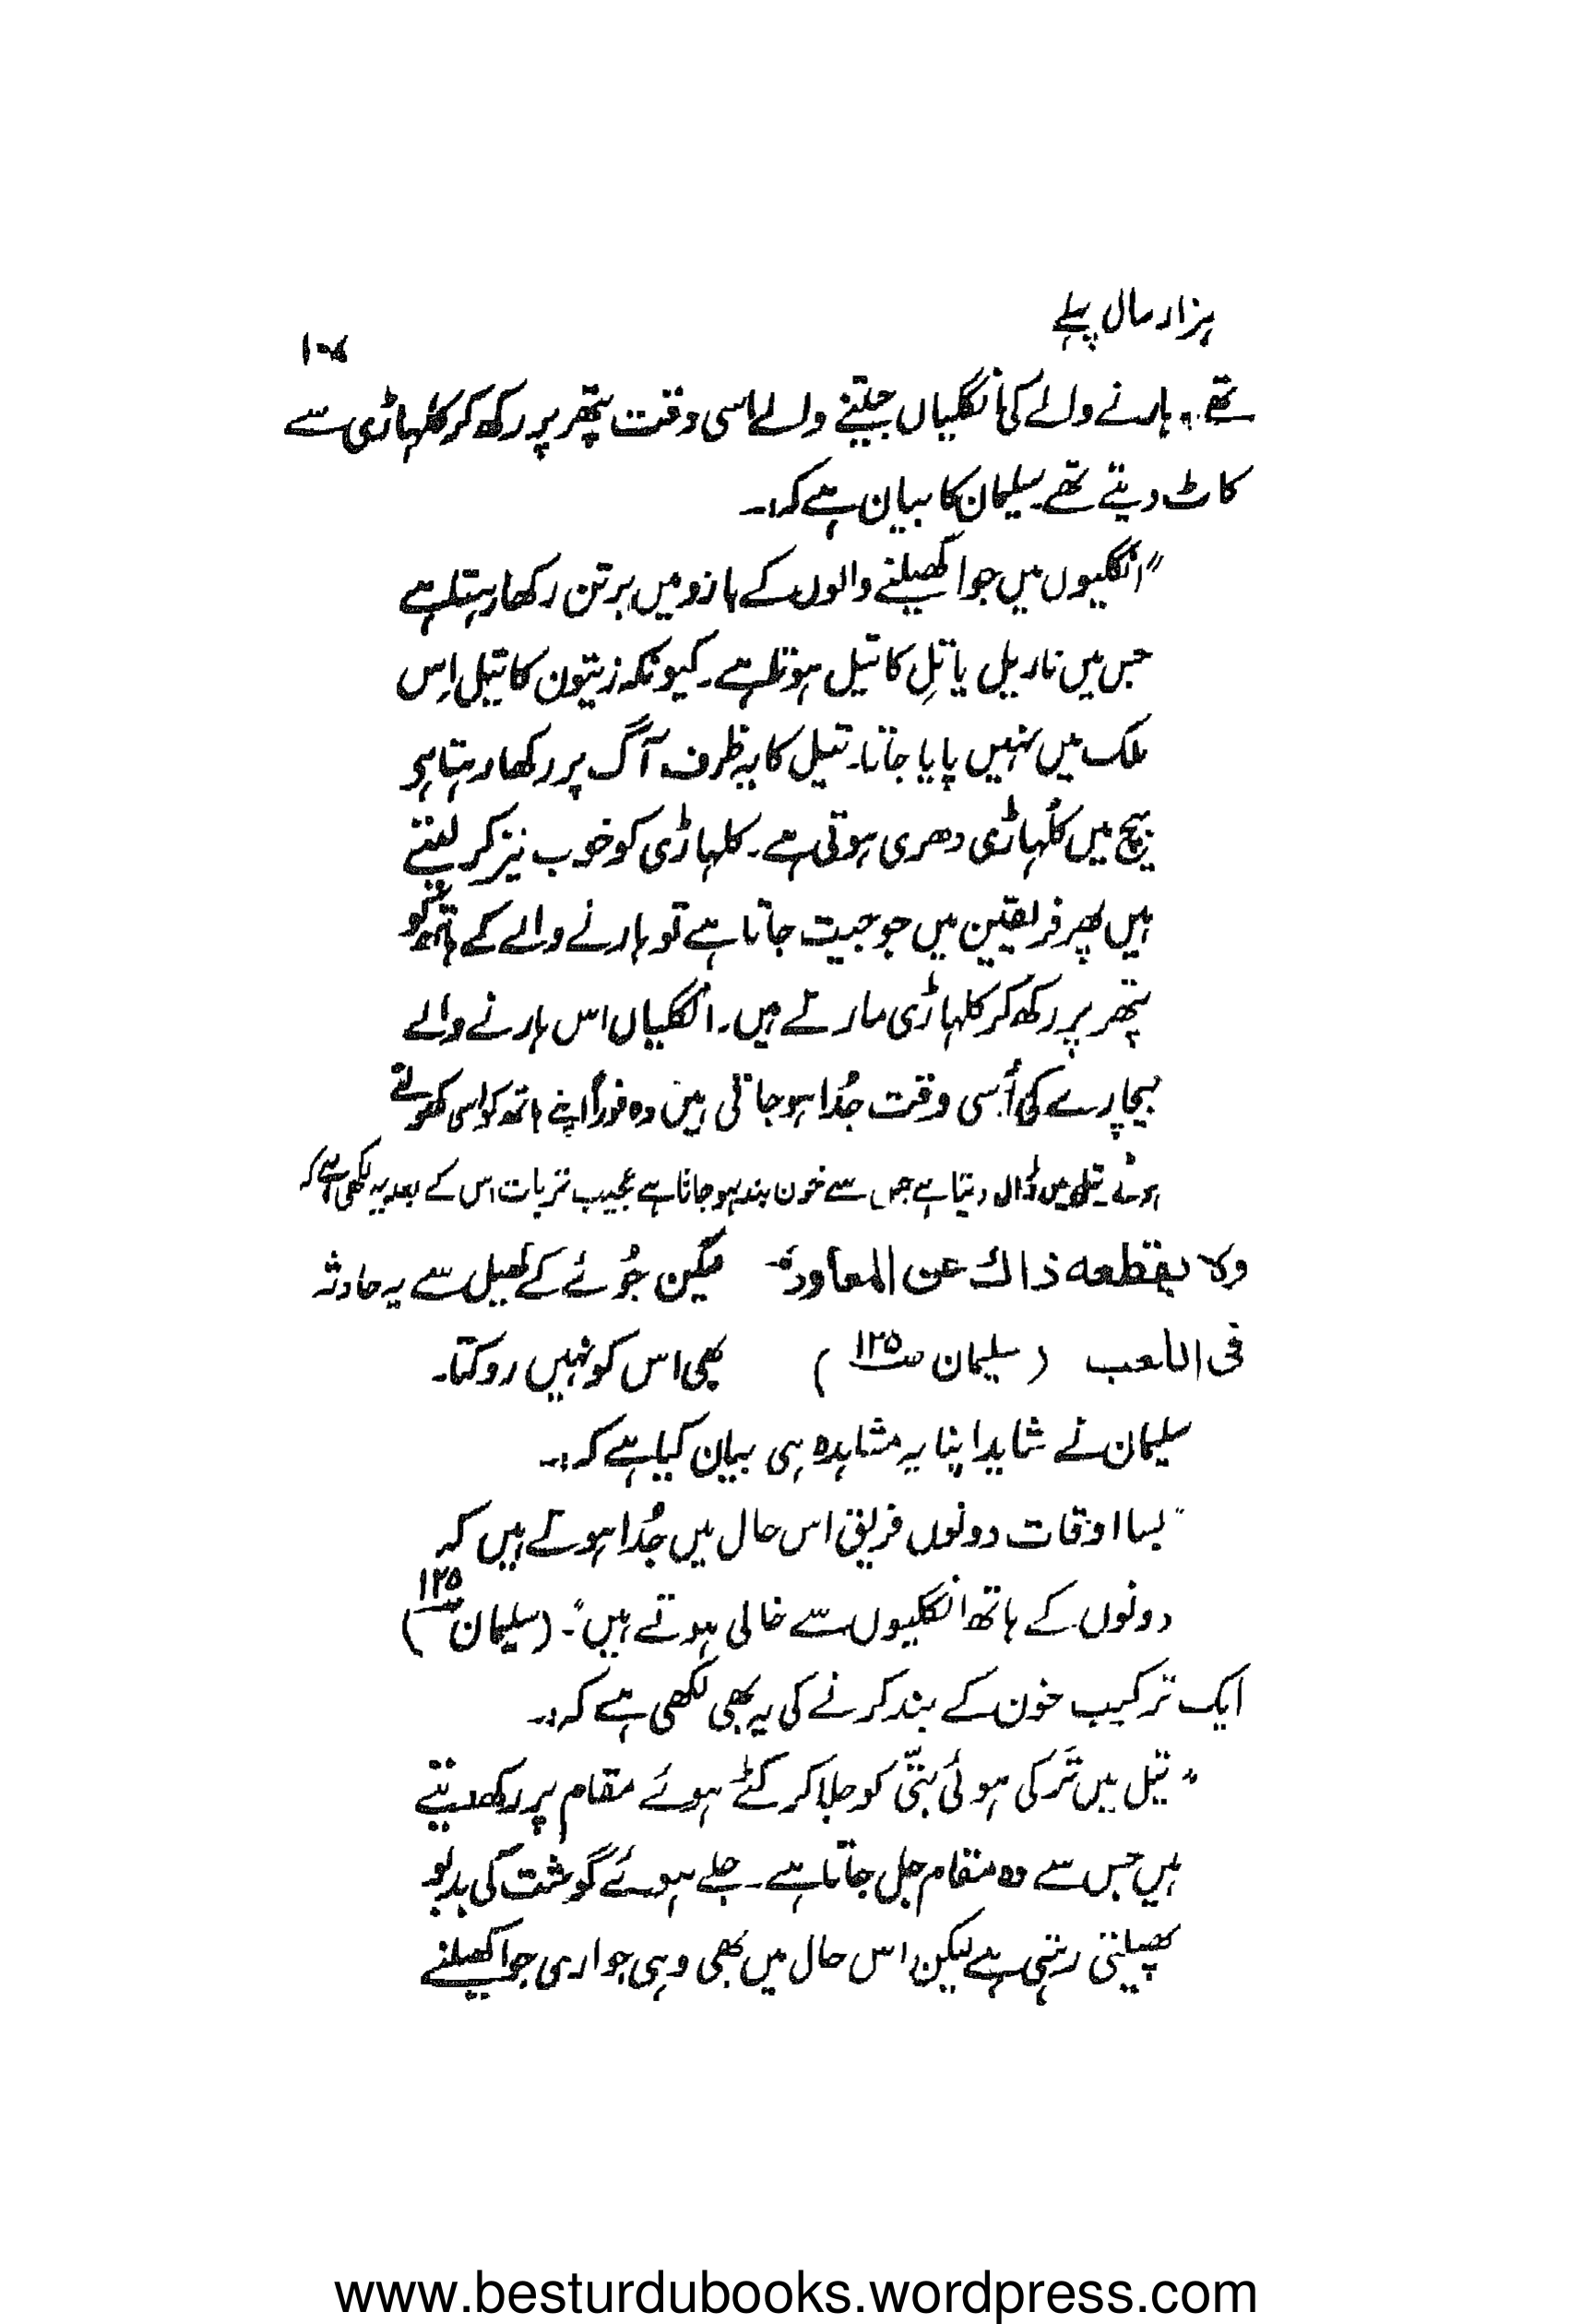 ہزار سال پہلے
تھے۔ ہارنے والے کی انگلیاں جیتنے والے اسی وقت پتھر پر رکھ کر کلہاڑی سے
کاٹ دیتے تھے۔ سلیمان کا بیان ہے کہ:۔
"انگلیوں میں جوا کھیلنے والوں کے بازو میں برتن رکھا رہتا ہے
جس میں ناریل یا تِل کا تیل ہوتا ہے۔ کیونکہ زیتون کا تیل اِس
ملک میں نہیں پایا جاتا۔ تیل کا یہ ظرف آگ پر رکھا رہتا ہی
بیچ میں کلُہاڑی دھری ہوتی ہے۔ کلہاڑی کو خوب تیز کر لیتے
ہیں پھر فریقین میں جو جیت جاتا ہے تو ہارنے والے کے ہاتھ کو
پتھر پر رکھ کر کلہاڑی مارتے ہیں۔ انگلیاں اس ہارنے والے
بیچارے کی اُسی وقت جُدا ہو جاتی ہیں وہ فوراً اپنے ہاتھ کو اسی کھولتے
ہوئے تیل میں ڈال دیتا ہے جس سے خون بند ہو جاتا ہے عجیب تر بات اس کے بعد یہ لکھی ہے کہ
ولا یقطعه ذاك عن المعاودة لیکن جُوئے کے کھیل سے یہ حادثہ
فی اللعب (سلیمان ص ۱۲۵) بھی اس کو نہیں روکتا۔
سلیمان نے شاید اپنا یہ مشاہدہ ہی بیان کیا ہے کہ:۔
"بسا اوقات دونوں فریق اس حال میں جُدا ہوتے ہیں کہ
دونوں کے ہاتھ انگلیوں سے خالی ہوتے ہیں"۔ (سلیمان ص ۱۲۵)
ایک ترکیب خون کے بند کرنے کی یہ بھی لکھی ہے کہ:۔
"تیل میں تَر کی ہوئی بتّی کو جلا کر کٹے ہوئے مقام پر رکھ دیتے
ہیں جس سے وہ مقام جل جاتا ہے۔ جلے ہوئے گوشت کی بدبو
پھیلتی رہتی ہے لیکن اس حال میں بھی وہی جواری جوا کھیلنے
www.besturdubooks.wordpress.com